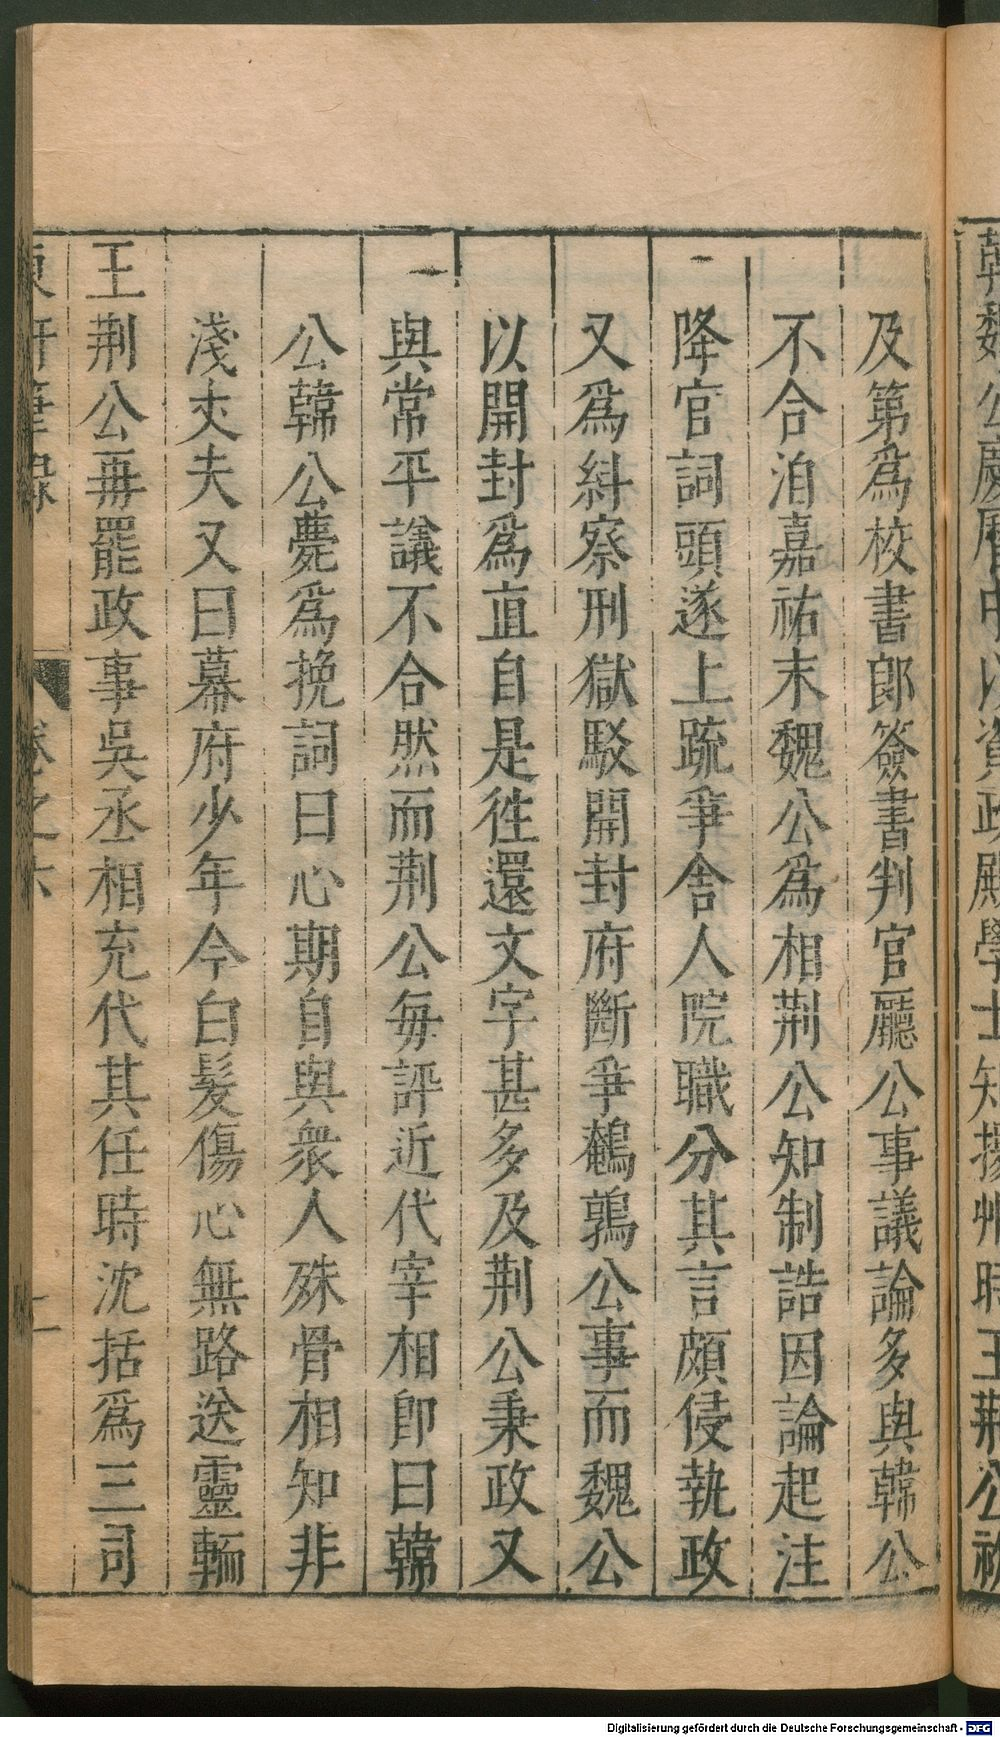 韓魏公慶曆中以資政殿學士知揚州時王荊公初
及第爲校書郎簽書判官廳公事議論多與韓公
不合洎嘉祐末魏公爲相荊公知制誥因論起注
降官詞頭遂上疏爭舍人院職分其言頗侵執政
又爲糾察刑獄駁開封府斷爭鵪鶉公事而魏公
以開封爲直自是徃還文字甚多及荊公秉政又
與常平議不合然而荊公每評近代宰相卽曰韓
公韓公薨爲挽詞曰心期自與衆人殊骨相知非
淺丈夫又曰幕府少年今白髮傷心無路送靈輀
王荊公再罷政事吳丞相充代其任時沈括爲三司
東軒筆錄 卷之六 二
Digitalisierung gefördert durch die Deutsche Forschungsgemeinschaft - DFG